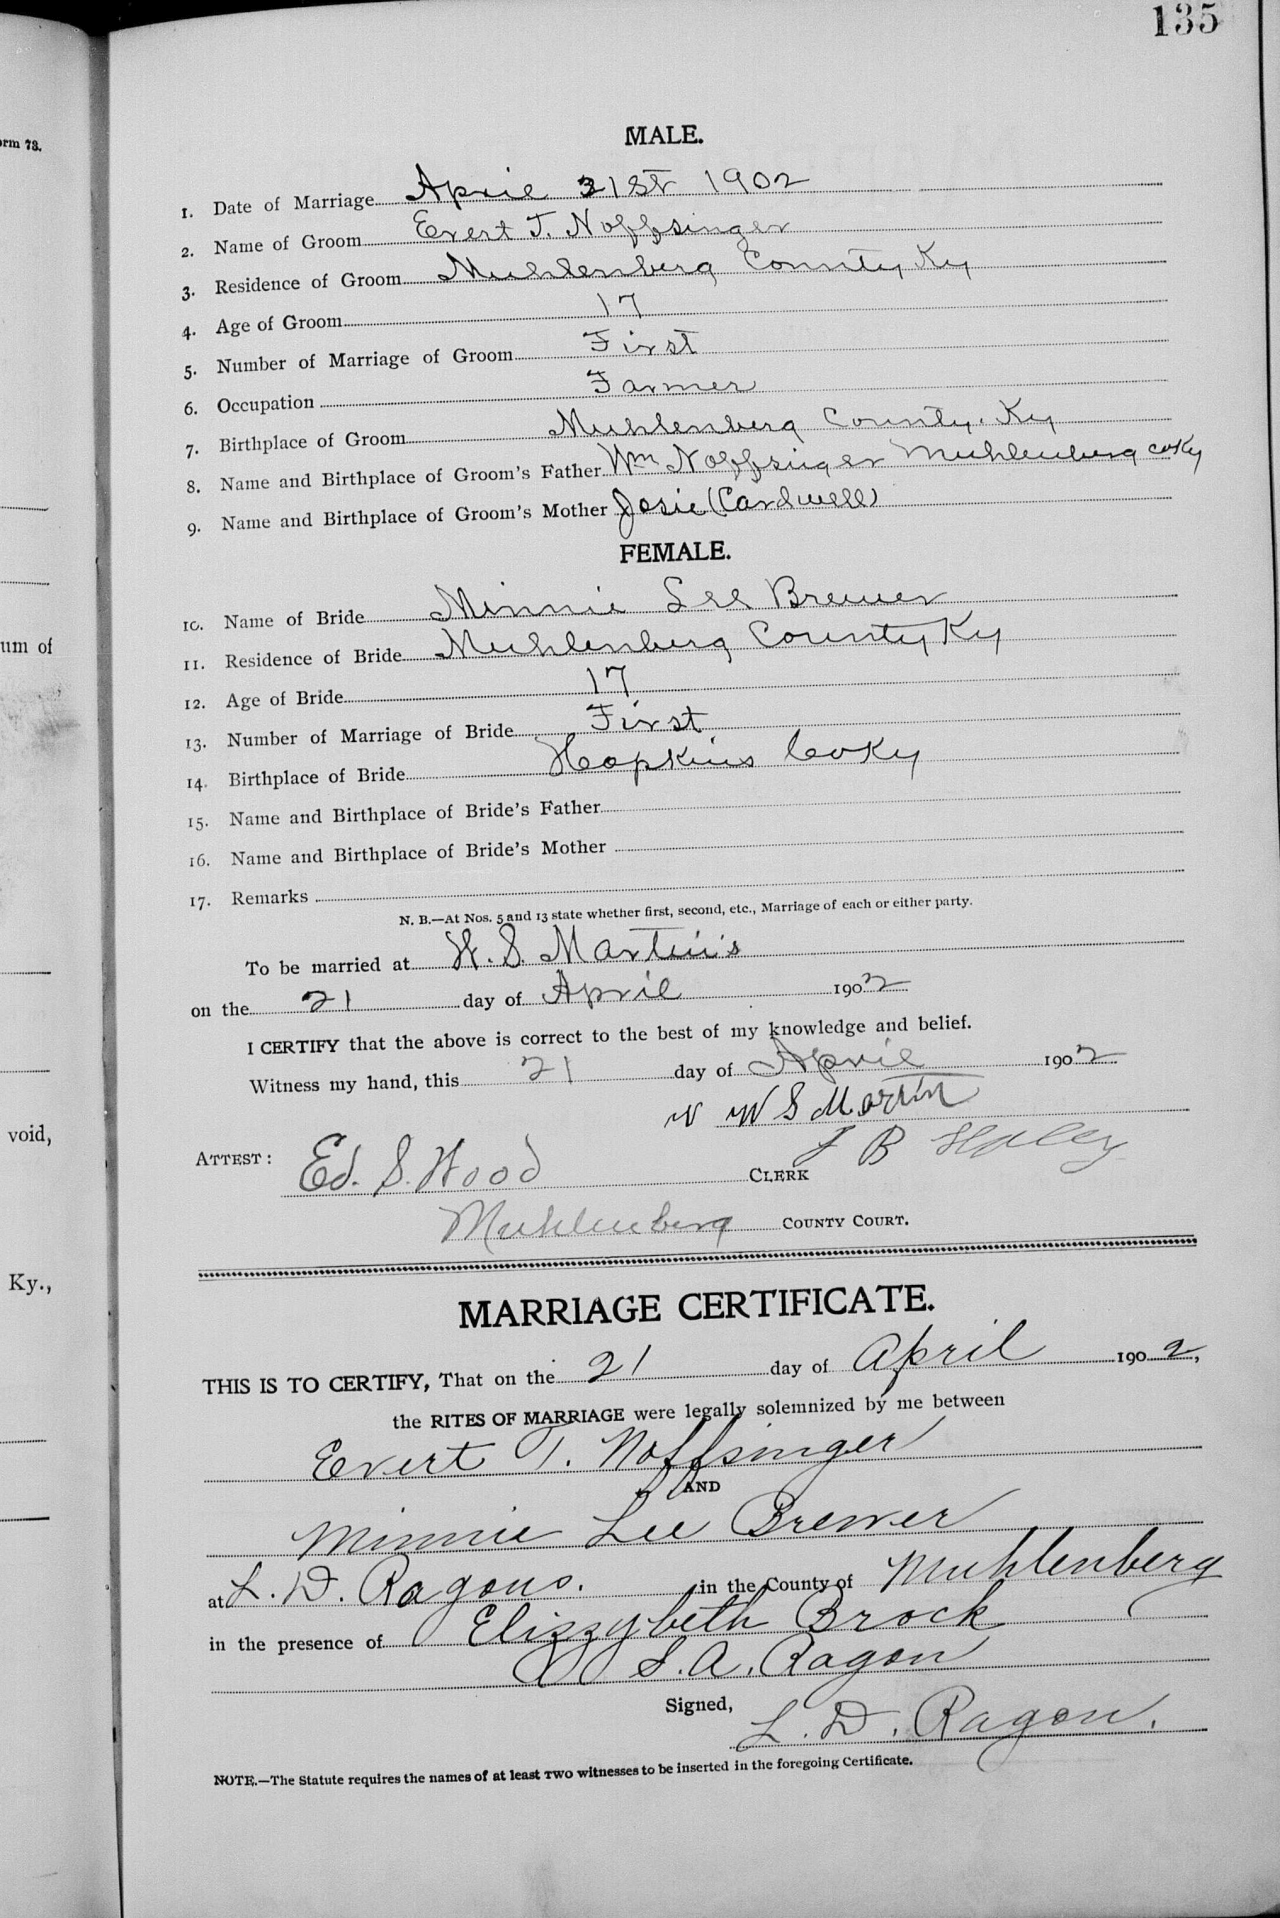 135
orm 73.
MALE.
1. Date of Marriage April 21st 1902
2. Name of Groom Evert T. Noffsinger
3. Residence of Groom Muhlenberg County Ky
4. Age of Groom 17
5. Number of Marriage of Groom First
6. Occupation Farmer
7. Birthplace of Groom Muhlenberg County. Ky
8. Name and Birthplace of Groom's Father Wm Noffsinger Muhlenberg co Ky
9. Name and Birthplace of Groom's Mother Josie (Cardwell)
FEMALE.
10. Name of Bride Minnie Lee Brewer
11. Residence of Bride Muhlenberg County Ky
um of
12. Age of Bride 17
13. Number of Marriage of Bride First
14. Birthplace of Bride Hopkins Co Ky
15. Name and Birthplace of Bride's Father
16. Name and Birthplace of Bride's Mother
17. Remarks
N. B.—At Nos. 5 and 13 state whether first, second, etc., Marriage of each or either party.
To be married at W. S. Martin's
on the 21 day of April 1902
I CERTIFY that the above is correct to the best of my knowledge and belief.
Witness my hand, this 21 day of April 1902
W S Martin
void,
J B
ATTEST: Ed. S. Wood CLERK
Muhlenberg COUNTY COURT.
Ky.,
MARRIAGE CERTIFICATE.
THIS IS TO CERTIFY, That on the 21 day of April 1902,
the RITES OF MARRIAGE were legally solemnized by me between
Evert T. Noffsinger
AND
Minnie Lee Brewer
at L. D. Ragons. in the County of Muhlenberg
in the presence of Elizzybeth Brock
S. A. Ragon
Signed,
L. D. Ragon.
NOTE.—The Statute requires the names of at least TWO witnesses to be inserted in the foregoing Certificate.